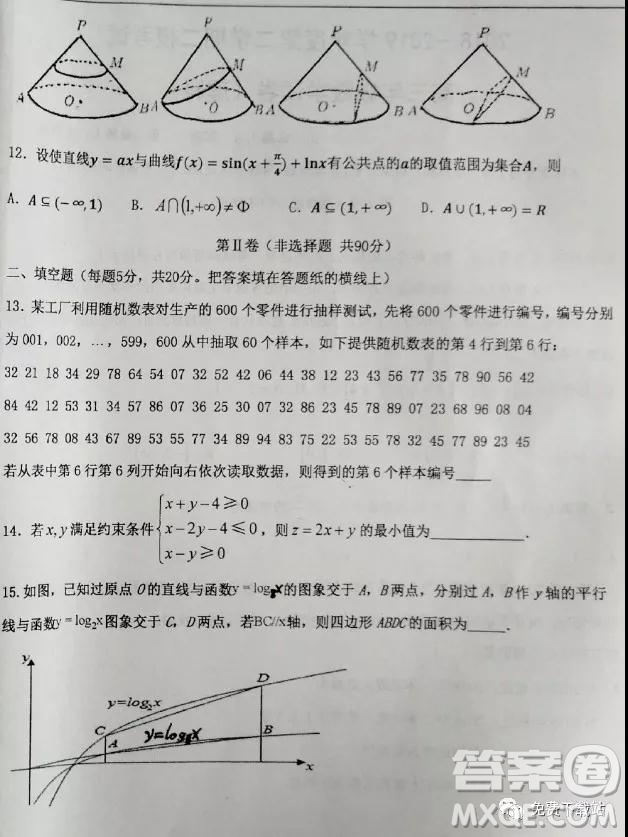 P P P P
M M M M
A O B A O B A O B A O B
12. 设使直线y = ax与曲线f(x) = sin(x + π/4) + lnx有公共点的a的取值范围为集合A，则
A. A ⊆ (−∞,1) B. A⋂(1,+∞) ≠ Φ C. A ⊆ (1, +∞) D. A ∪ (1, +∞) = R
第Ⅱ卷（非选择题 共90分）
二、填空题（每题5分，共20分。把答案填在答题纸的横线上）
13. 某工厂利用随机数表对生产的 600 个零件进行抽样测试，先将 600 个零件进行编号，编号分别
为 001，002，…，599，600 从中抽取 60 个样本，如下提供随机数表的第 4 行到第 6 行：
32 21 18 34 29 78 64 54 07 32 52 42 06 44 38 12 23 43 56 77 35 78 90 56 42
84 42 12 53 31 34 57 86 07 36 25 30 07 32 86 23 45 78 89 07 23 68 96 08 04
32 56 78 08 43 67 89 53 55 77 34 89 94 83 75 22 53 55 78 32 45 77 89 23 45
若从表中第 6 行第 6 列开始向右依次读取数据，则得到的第 6 个样本编号_____
14. 若x, y 满足约束条件{x + y − 4 ⩾ 0
x − 2y − 4 ⩽ 0，则 z = 2x + y 的最小值为___________.
x − y ⩾ 0
15. 如图，已知过原点 O 的直线与函数y = log₈x的图象交于 A，B 两点，分别过 A，B 作 y 轴的平行
线与函数y = log₂x图象交于 C，D 两点，若BC//x轴，则四边形 ABDC的面积为_____.
y
D
y=log₂x
C
y=log₈x
A B
x
答案圈
MXQE.COM
免费下载站